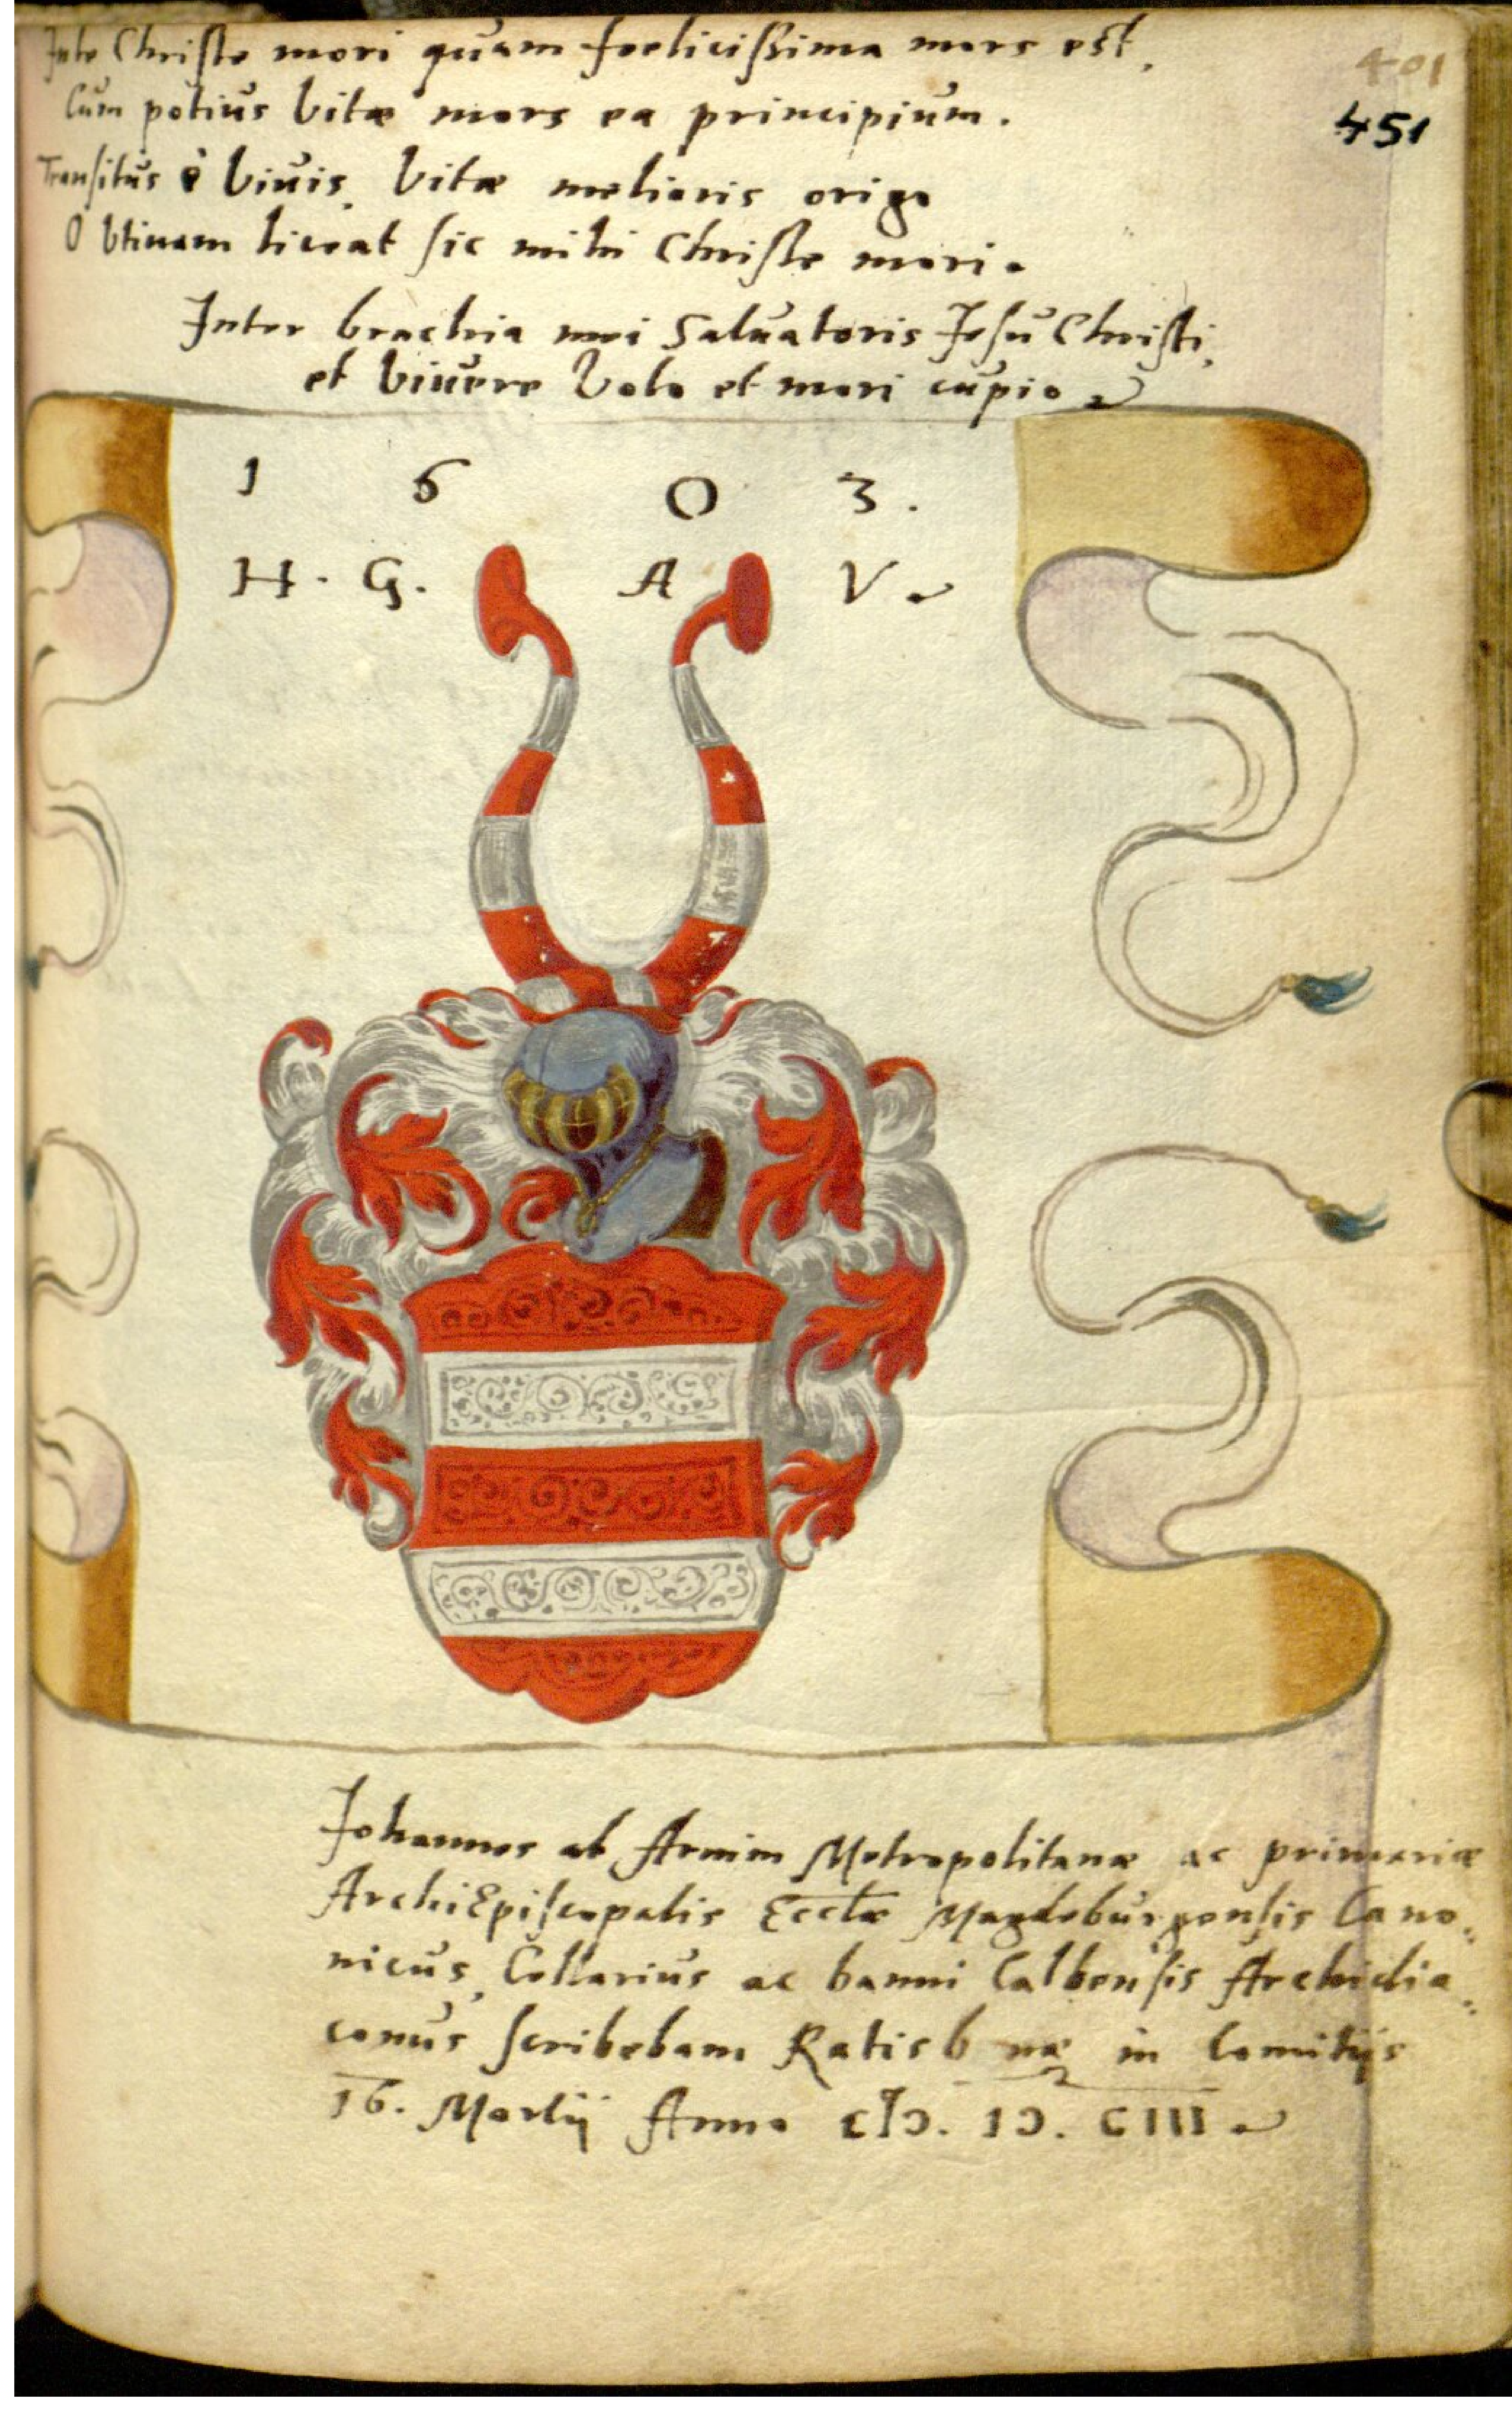 Inte Christe mori quam foelicissima mors est,
401
Cum potius vitæ mors ea principium.
451
Transitus è vivis, vitæ melioris origo
O vtinam liceat sic mihi Christe mori.
Inter brachia mei Saluatoris Jesu Christi,
et vivere volo et mori cupio
1 6 0 3.
H. G. A V.
Johannes ab Arnim Metropolitanæ ac primariæ
ArchiEpiscopalis Ecclæ Magdeburgensis Cano„
nicus, Cellarius ac banni Calbensis Archidia„
conus scribebam Ratisb næ in Comitijs
16. Martij Anno cIↄ. Iↄ. CIII